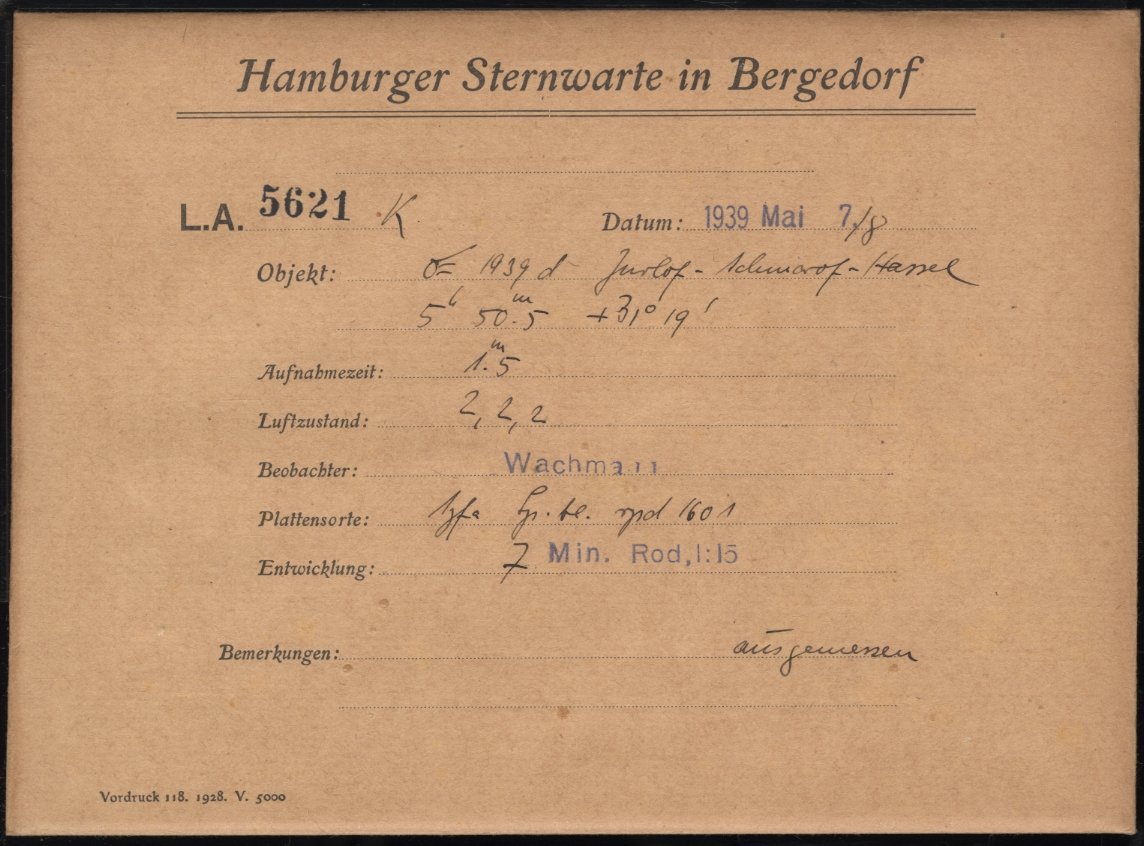 Hamburger Sternwarte in Bergedorf
L.A. 5621 K Datum: 1939 Mai 7./8
Objekt: ☄ 1939 d Jurlof - Achmarof - Hassel
5h 50m.5 +31° 19'
Aufnahmezeit: 1m.5
Luftzustand: 2, 2, 2
Beobachter: Wachmann
Plattensorte: Agfa 1601
Entwicklung: 7 Min. Rod, 1:15
Bemerkungen: ausgemessen
Vordruck 118. 1928. V. 5000